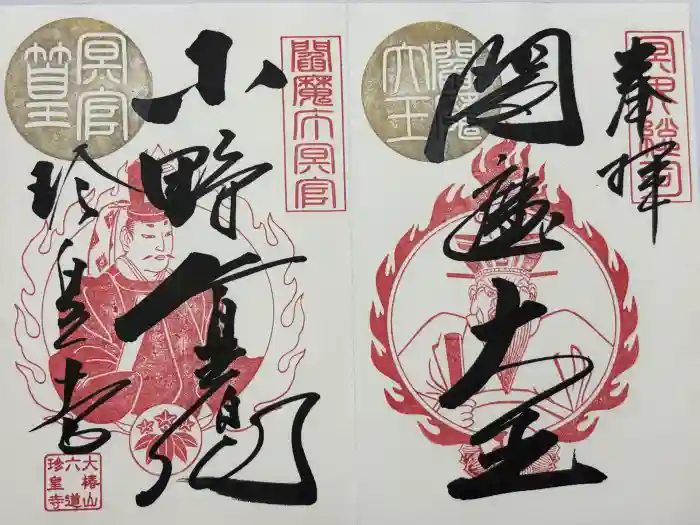 奉拝
閻魔大王
閻魔
大王
閻魔大冥官
小野篁卿
冥官
篁
珍皇寺
大椿山
六道
珍皇寺